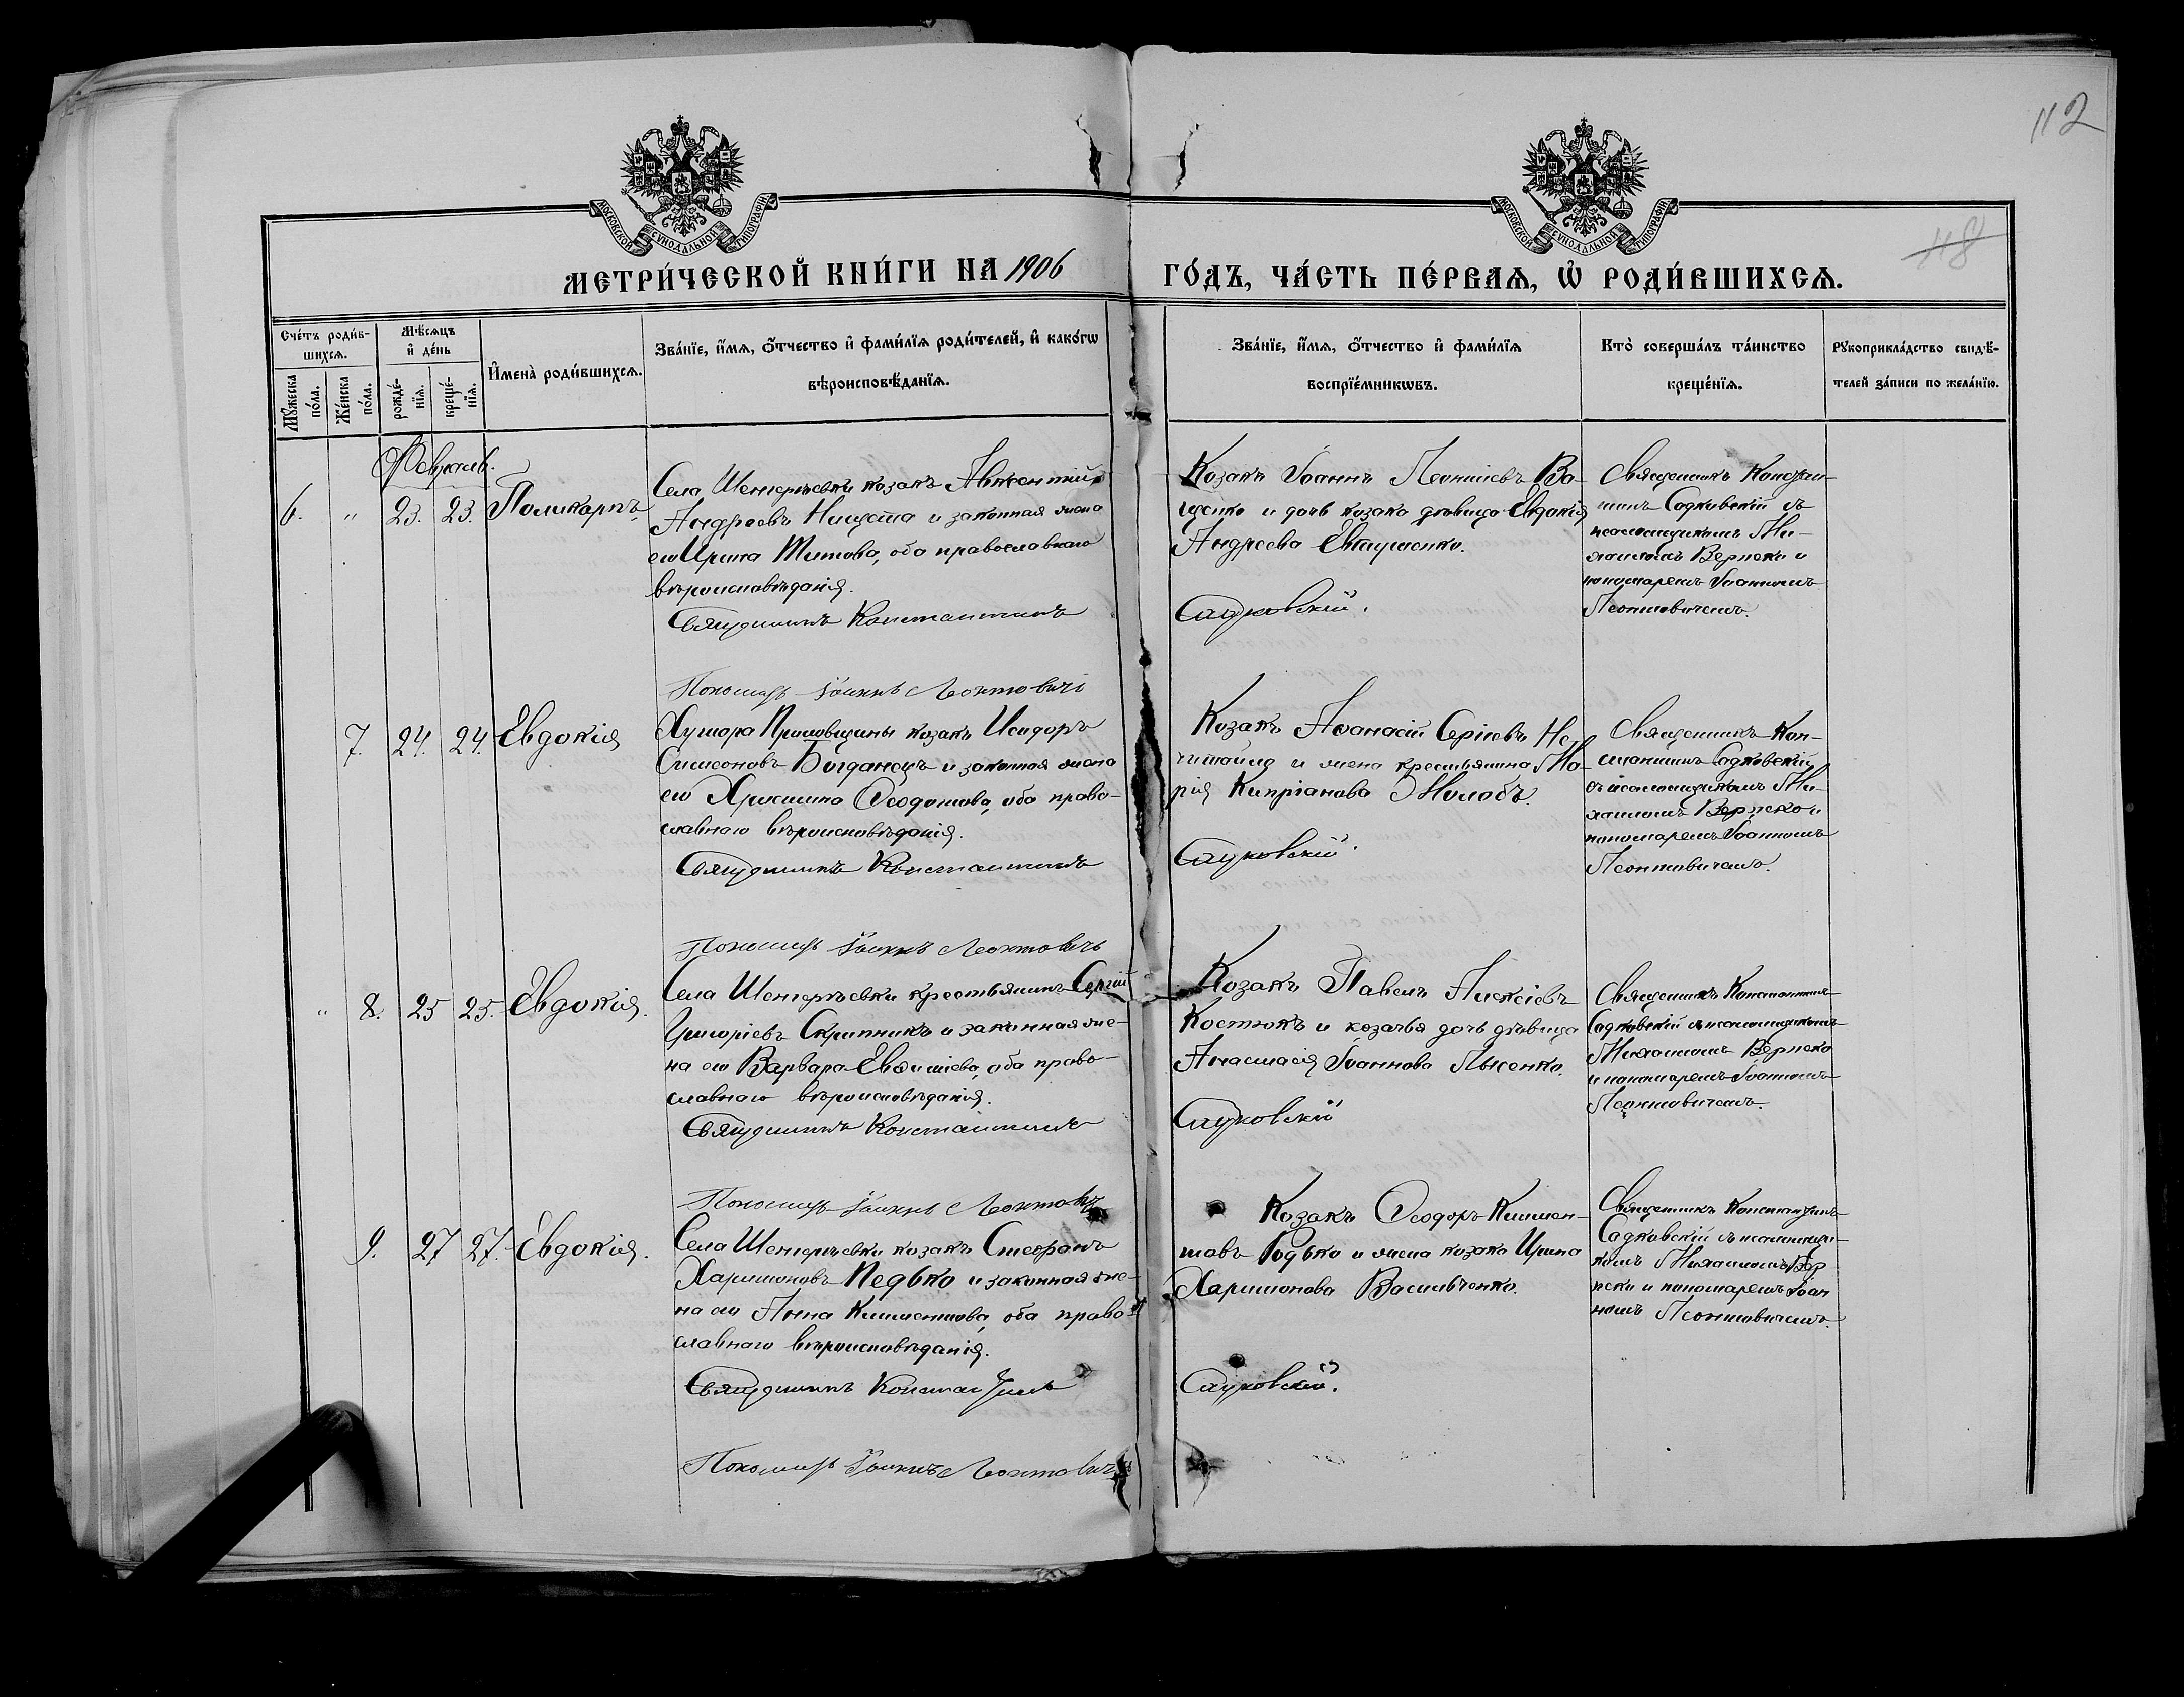 112
118
МОСКОВСКОЙ СѴНОДАЛЬНОЙ ТИПОГРАФІИ
МОСКОВСКОЙ СѴНОДАЛЬНОЙ ТИПОГРАФІИ
МЕТРИ́ЧЕСКОЙ КНИ́ГИ НА 1906 ГО́ДЪ, ЧА́СТЬ ПЕ́РВАѦ, Ѡ҆ РОДИ́ВШИХСѦ.
Сче́тъ роди́в-
шихсѧ.
Мꙋ́жеска
по́ла.
Же́нска
по́ла.
Мѣ́сѧцъ
и҆ де́нь
рожде́-
нїѧ.
креще́-
нїѧ.
И҆мена̀ роди́вшихсѧ.
Зва́нїе, и҆́мѧ, ѻ҆́тчество и҆ фами́лїѧ роди́телей, и҆ како́гѡ
вѣроисповѣ́данїѧ.
Зва́нїе, и҆́мѧ, ѻ҆́тчество и҆ фами́лїѧ
воспрїе́мникѡвъ.
Кто̀ соверша́лъ та́инство
креще́нїѧ.
Рꙋкоприкла́дство свидѣ́-
телей за́писи по жела́нїю.
Февраль.
6. " 23. 23. Поликарпъ
Села Шенгеръевки козакъ Авксентій
Андреевъ Нищота и законная жена
его Ирина Титова, оба православнаго
вѣроисповѣданія.
Священникъ Константинъ
Пономарь Іоаннъ Леонтовичъ
Козакъ Іоаннъ Леонтіевъ Ва-
щенко и дочь козака дѣвица Евдокія
Андреева Евтушенко.
Садковскій.
Священникъ Констан-
тинъ Садковскій съ
псаломщикомъ Ми-
хаиломъ Вернеко и
пономаремъ Іоанномъ
Леонтовичемъ.
7. 24. 24. Евдокія
Хутора козакъ Исидоръ
Симеоновъ Богданецъ и законная жена
его Христина Ѳеодотова, оба право-
славнаго вѣроисповѣданія.
Священникъ Константинъ
Пономарь Іоаннъ Леонтовичъ
Козакъ Аѳанасій Сергіевъ Не-
читайло и жена крестьянина Ма-
рія Кипріанова Жолобъ.
Садковскій.
Священникъ Кон-
стантинъ Садковскій
съ псаломщикомъ Ми-
хаиломъ Вернеко и
пономаремъ Іоанномъ
Леонтовичемъ.
" 8. 25 25. Евдокія.
Села Шенгеръевки крестьянинъ Сергій
Григоріевъ Скрипникъ и законная же-
на его Варвара Евѳиміева, оба право-
славнаго вѣроисповѣданія.
Священникъ Константинъ
Пономарь Іоаннъ Леонтовичъ
Козакъ Павелъ Алексіевъ
Костюкъ и козачья дочь дѣвица
Анастасія Іоаннова Лысенко.
Садковскій
Священникъ Константинъ
Садковскій съ псаломщикомъ
Михаиломъ Вернеко
и пономаремъ Іоанномъ
Леонтовичемъ.
9. 27 27. Евдокія.
Села Шенгеръевки козакъ Стефанъ
Харитоновъ Педько и законная же-
на его Анна Климентова, оба право-
славнаго вѣроисповѣданія.
Священникъ Константинъ
Пономарь Іоаннъ Леонтовичъ
Козакъ Ѳеодоръ Климен-
товъ Родько и жена козака Ирина
Харитонова Васильченко.
Садковскій.
Священникъ Константинъ
Садковскій съ псаломщи-
комъ Михаиломъ Вер-
неко и пономаремъ Іоан-
номъ Леонтовичемъ.